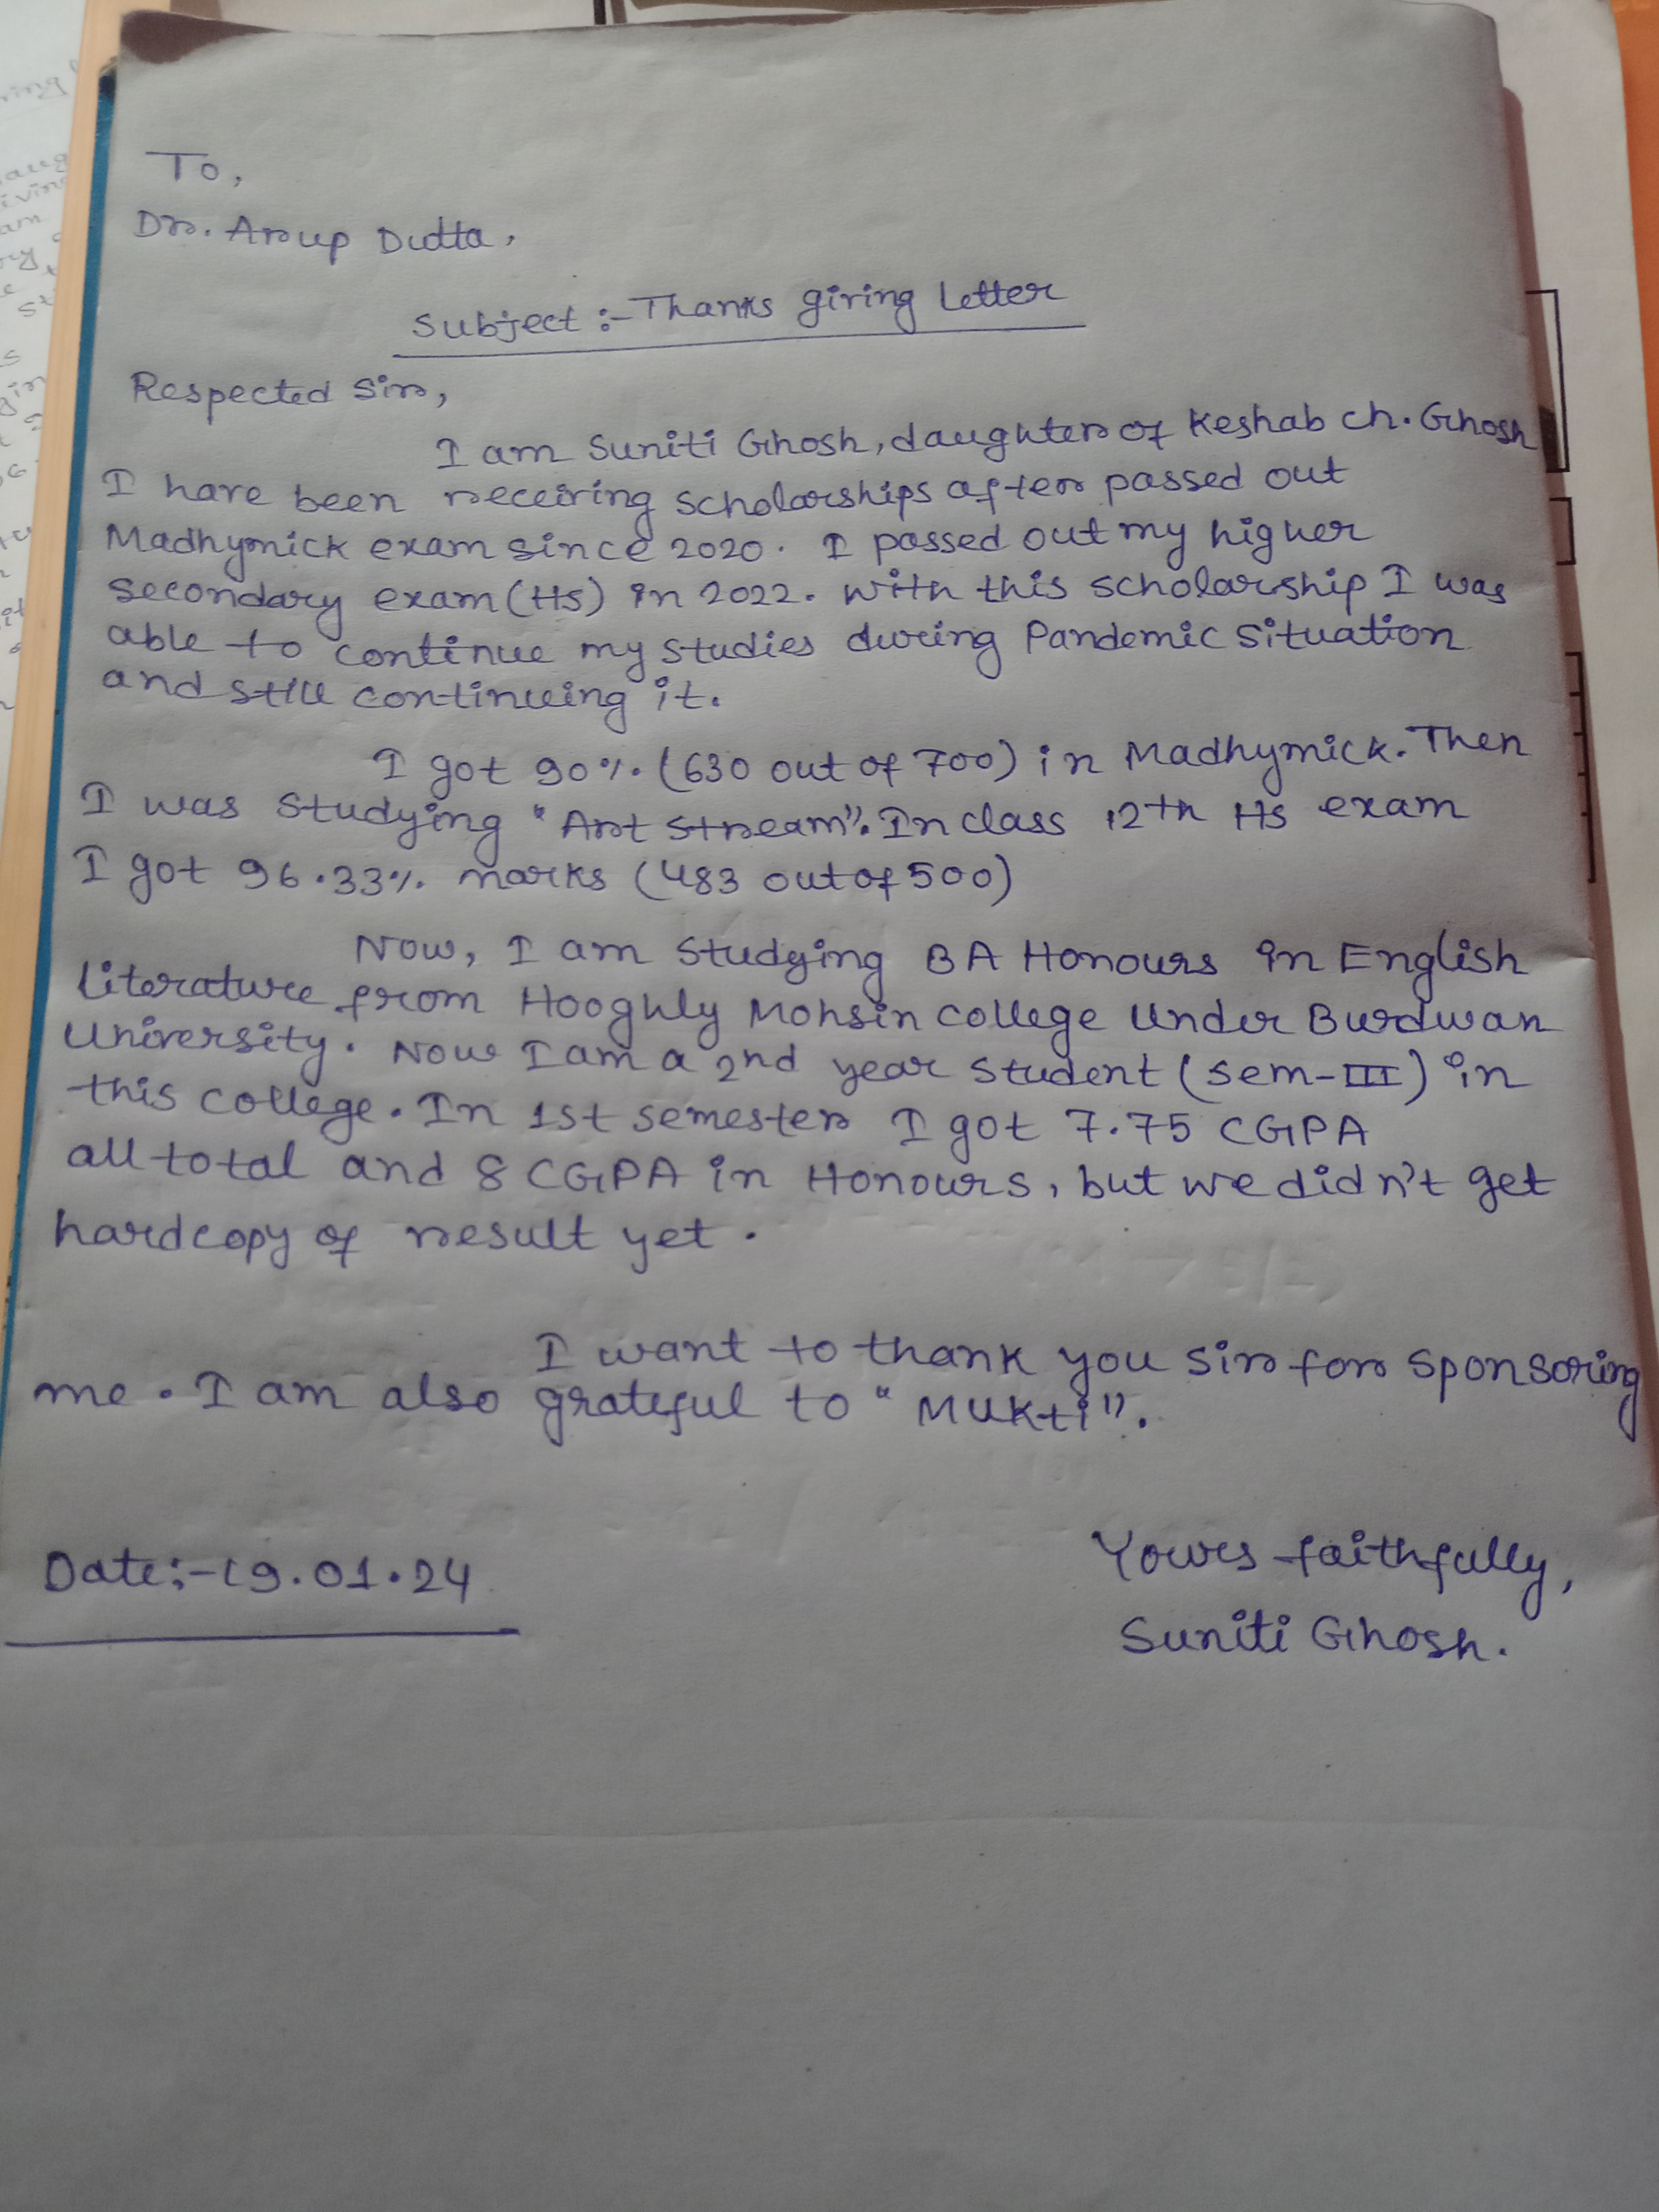 To,
Dr. Arup Dutta,
Subject :- Thanks giving Letter
Respected Sir,
I am Suniti Ghosh, daughter of Keshab Ch. Ghosh
I have been receiving scholarships after passed out
Madhymick exam since 2020. I passed out my higher
secondary exam (HS) in 2022. With this scholarship I was
able to continue my studies during Pandemic Situation
and still continuing it.
I got 90% (630 out of 700) in Madhymick. Then
I was studying "Art Stream". In class 12th HS exam
I got 96.33% marks (483 out of 500)
Now, I am studying BA Honours in English
literature from Hooghly Mohsin College Under Burdwan
University. Now I am a 2nd year student (sem-III) in
this college. In 1st semester I got 7.75 CGPA
all total and 8 CGPA in Honours, but we didn't get
hardcopy of result yet.
I want to thank you sir for sponsoring
me. I am also grateful to "Mukti".
Date:-19.01.24
Yours faithfully,
Suniti Ghosh.